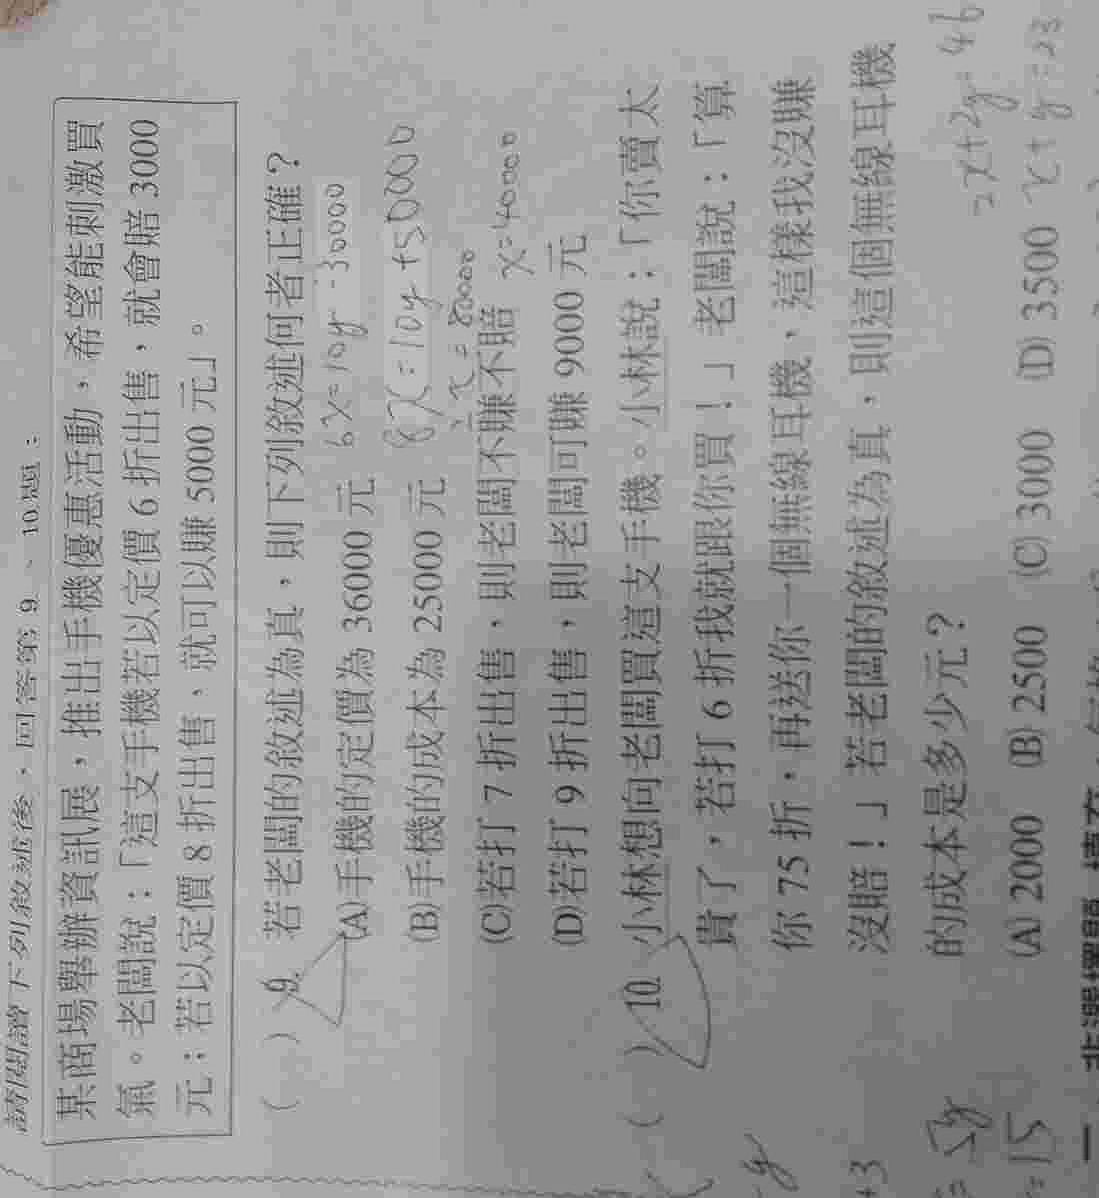 請閱讀下列敘述後，回答第 9 、 10 題：
某商場舉辦資訊展，推出手機優惠活動，希望能刺激買
氣。老闆說：「這支手機若以定價 6 折出售，就會賠 3000
元；若以定價 8 折出售，就可以賺 5000 元」。
( ) 9. 若老闆的敘述為真，則下列敘述何者正確？
(A)手機的定價為 36000 元 6x=10y-30000
(B)手機的成本為 25000 元 8x=10y+50000
x=80000
(C)若打 7 折出售，則老闆不賺不賠 x=40000
(D)若打 9 折出售，則老闆可賺 9000 元
( ) 10. 小林想向老闆買這支手機。小林說：「你賣太
貴了，若打 6 折我就跟你買！」老闆說：「算
你 75 折，再送你一個無線耳機，這樣我沒賺
沒賠！」若老闆的敘述為真，則這個無線耳機
的成本是多少元？
(A) 2000 (B) 2500 (C) 3000 (D) 3500
2x+2y=46
x+y=23
-y
+3
=5y
=15
一、非選擇題